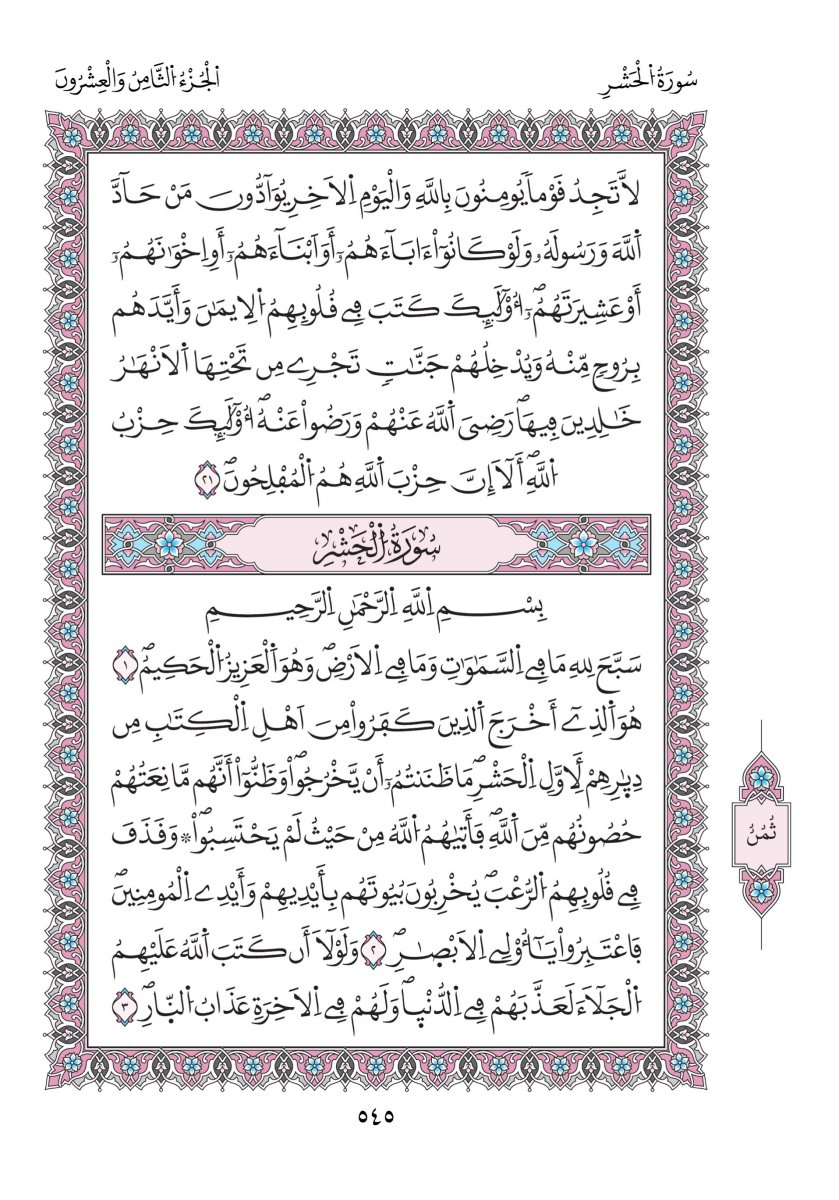 سُورَةُ اُلْحَشْرِ
اَلْجُزْءُ اُلثَّامِنُ وَالْعِشْرُونَ
لَّا تَجِدُ قَوْماً يُومِنُونَ بِاللَّهِ وَالْيَوْمِ اِلَاخِرِ يُوَآدُّونَ مَنْ حَآدَّ
اَللَّهَ وَرَسُولَهُۥ وَلَوْ كَانُوٓاْ ءَابَآءَهُمُۥٓ أَوَ اَبْنَآءَهُمُۥٓ أَوِ اِخْوَٰنَهُمُۥٓ
أَوْ عَشِيرَتَهُمُۥٓۖ أُوْلَٰٓئِكَ كَتَبَ فِے قُلُوبِهِمُ اُلِايمَٰنَ وَأَيَّدَهُم
بِرُوحٖ مِّنْهُ وَيُدْخِلُهُمْ جَنَّٰتٖ تَجْرِے مِن تَحْتِهَا اَلَانْهَٰرُ
خَٰلِدِينَ فِيهَاۖ رَضِىَ اَللَّهُ عَنْهُمْ وَرَضُواْ عَنْهُۖ أُوْلَٰٓئِكَ حِزْبُ
اُللَّهِۖ أَلَآ إِنَّ حِزْبَ اَللَّهِ هُمُ اُلْمُفْلِحُونَۖ ٢١
سُورَةُ اُلْحَشْرِ
بِسْمِ اِللَّهِ اِلرَّحْمَٰنِ اِلرَّحِيمِ
سَبَّحَ لِلهِ مَا فِے اِلسَّمَٰوَٰتِ وَمَا فِے اِلَارْضِۖ وَهُوَ اَلْعَزِيزُ اُلْحَكِيمُۖ ١
هُوَ اَلذِےٓ أَخْرَجَ اَلذِينَ كَفَرُواْ مِنَ اَهْلِ اِلْكِتَٰبِ مِن
دِيٰ۪رِهِمْ لِأَوَّلِ اِلْحَشْرِۖ مَا ظَنَنتُمُۥٓ أَنْ يَّخْرُجُواْۖ وَظَنُّوٓاْ أَنَّهُم مَّانِعَتُهُمْ
حُصُونُهُم مِّنَ اَللَّهِۖ فَأَتَيٰهُمُ اُللَّهُ مِنْ حَيْثُ لَمْ يَحْتَسِبُواْۖ ۞ وَقَذَفَ
فِے قُلُوبِهِمُ اُلرُّعْبَۖ يُخْرِبُونَ بُيُوتَهُم بِأَيْدِيهِمْ وَأَيْدِے اِلْمُومِنِينَۖ
فَاعْتَبِرُواْ يَٰٓأُوْلِے اِلَابْصٰ۪رِۖ ٢ وَلَوْلَآ أَن كَتَبَ اَللَّهُ عَلَيْهِمُ
اُلْجَلَآءَ لَعَذَّبَهُمْ فِے اِلدُّنْي۪اۖ وَلَهُمْ فِے اِلَاخِرَةِ عَذَابُ اُلنّ۪ارِۖ ٣
ثُمُنُ
٥٤٥